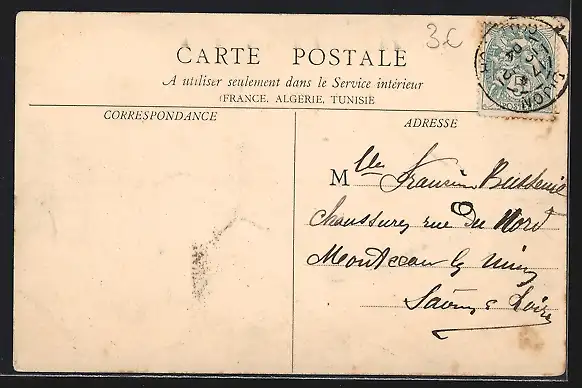 3€
CARTE POSTALE
A utiliser seulement dans le Service intérieur
(FRANCE, ALGERIE, TUNISIE
CORRESPONDANCE
ADRESSE
DIJON
POSTES
Mlle
Chaussures rue du Nord
Montceau les Mines
Saône & Loire